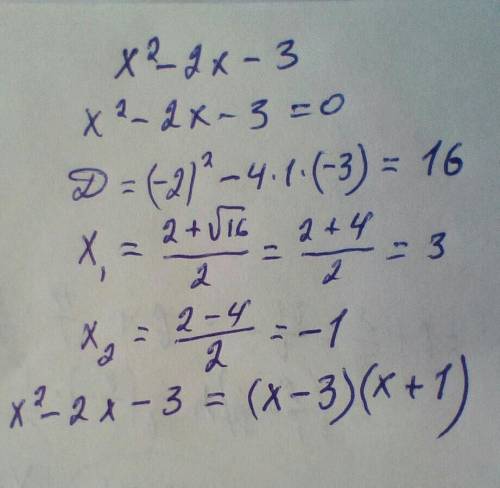 x² - 2x - 3
x² - 2x - 3 = 0
D = (-2)² - 4 · 1 · (-3) = 16
x₁ = (2 + √16)/2 = (2 + 4)/2 = 3
x₂ = (2 - 4)/2 = -1
x² - 2x - 3 = (x - 3)(x + 1)